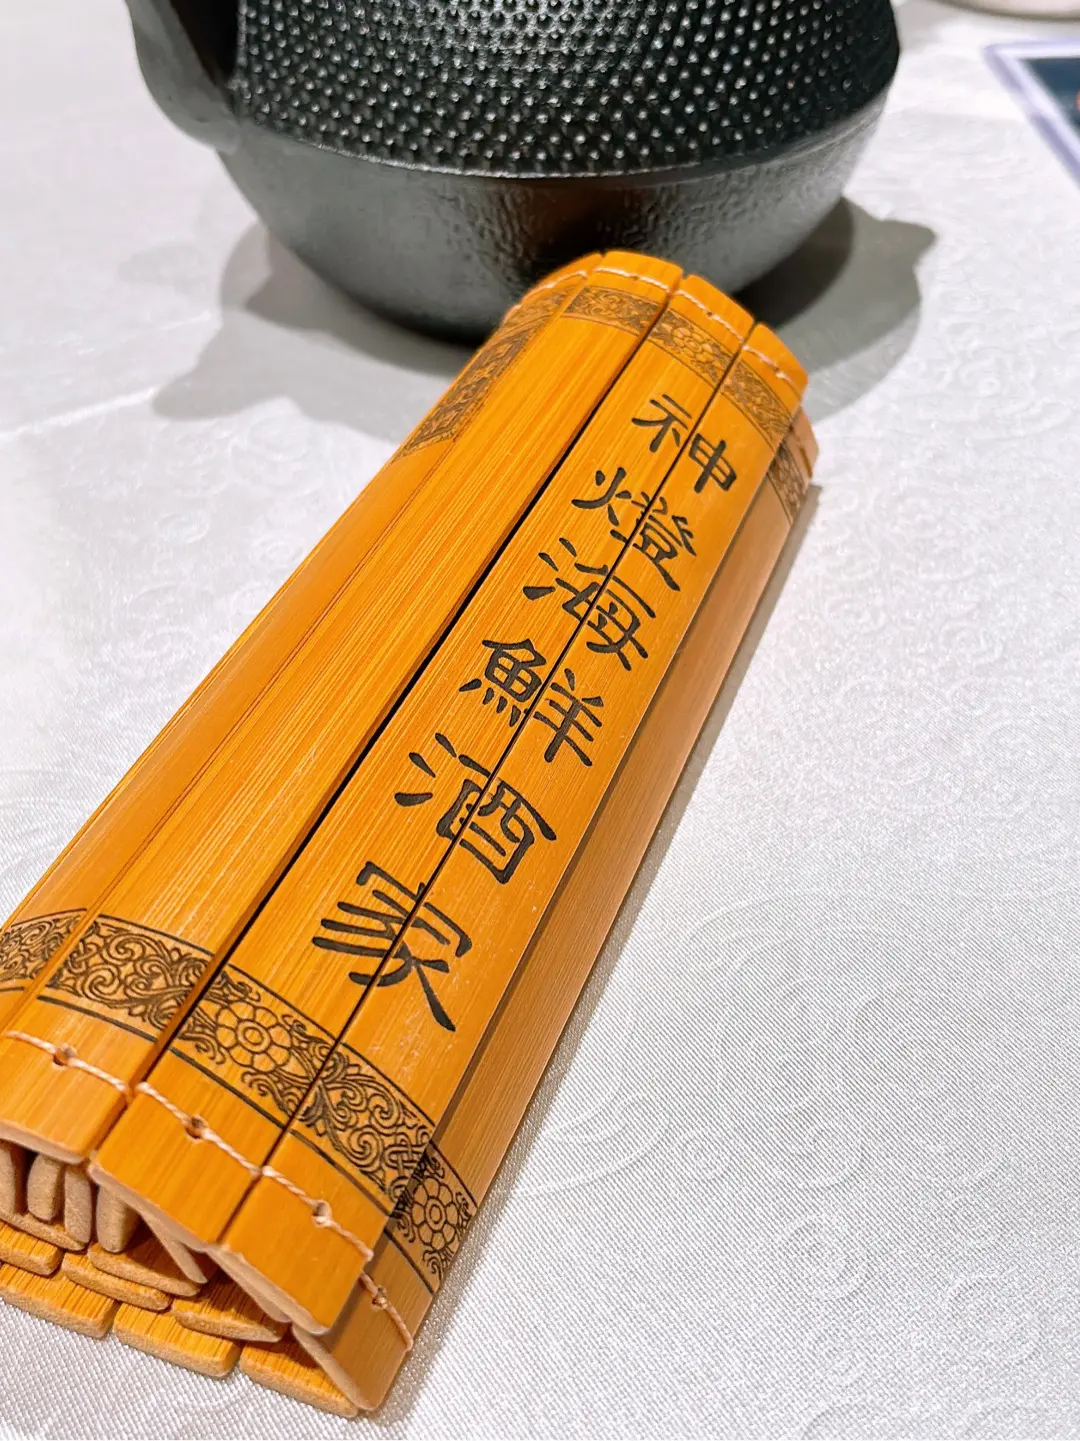 神燈海鮮酒家